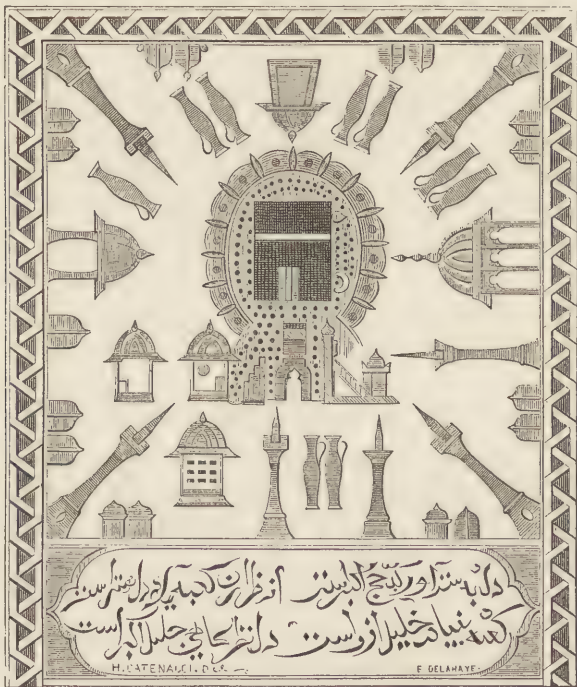 دل بدست آور که حج اکبرست از هزاران کعبه یک دل بهترست
کعبه بنیاد خلیل آزرست دل نظرگاه جلیل اکبر است
H. CATENACCI. DEL.
F. DELAHAYE.